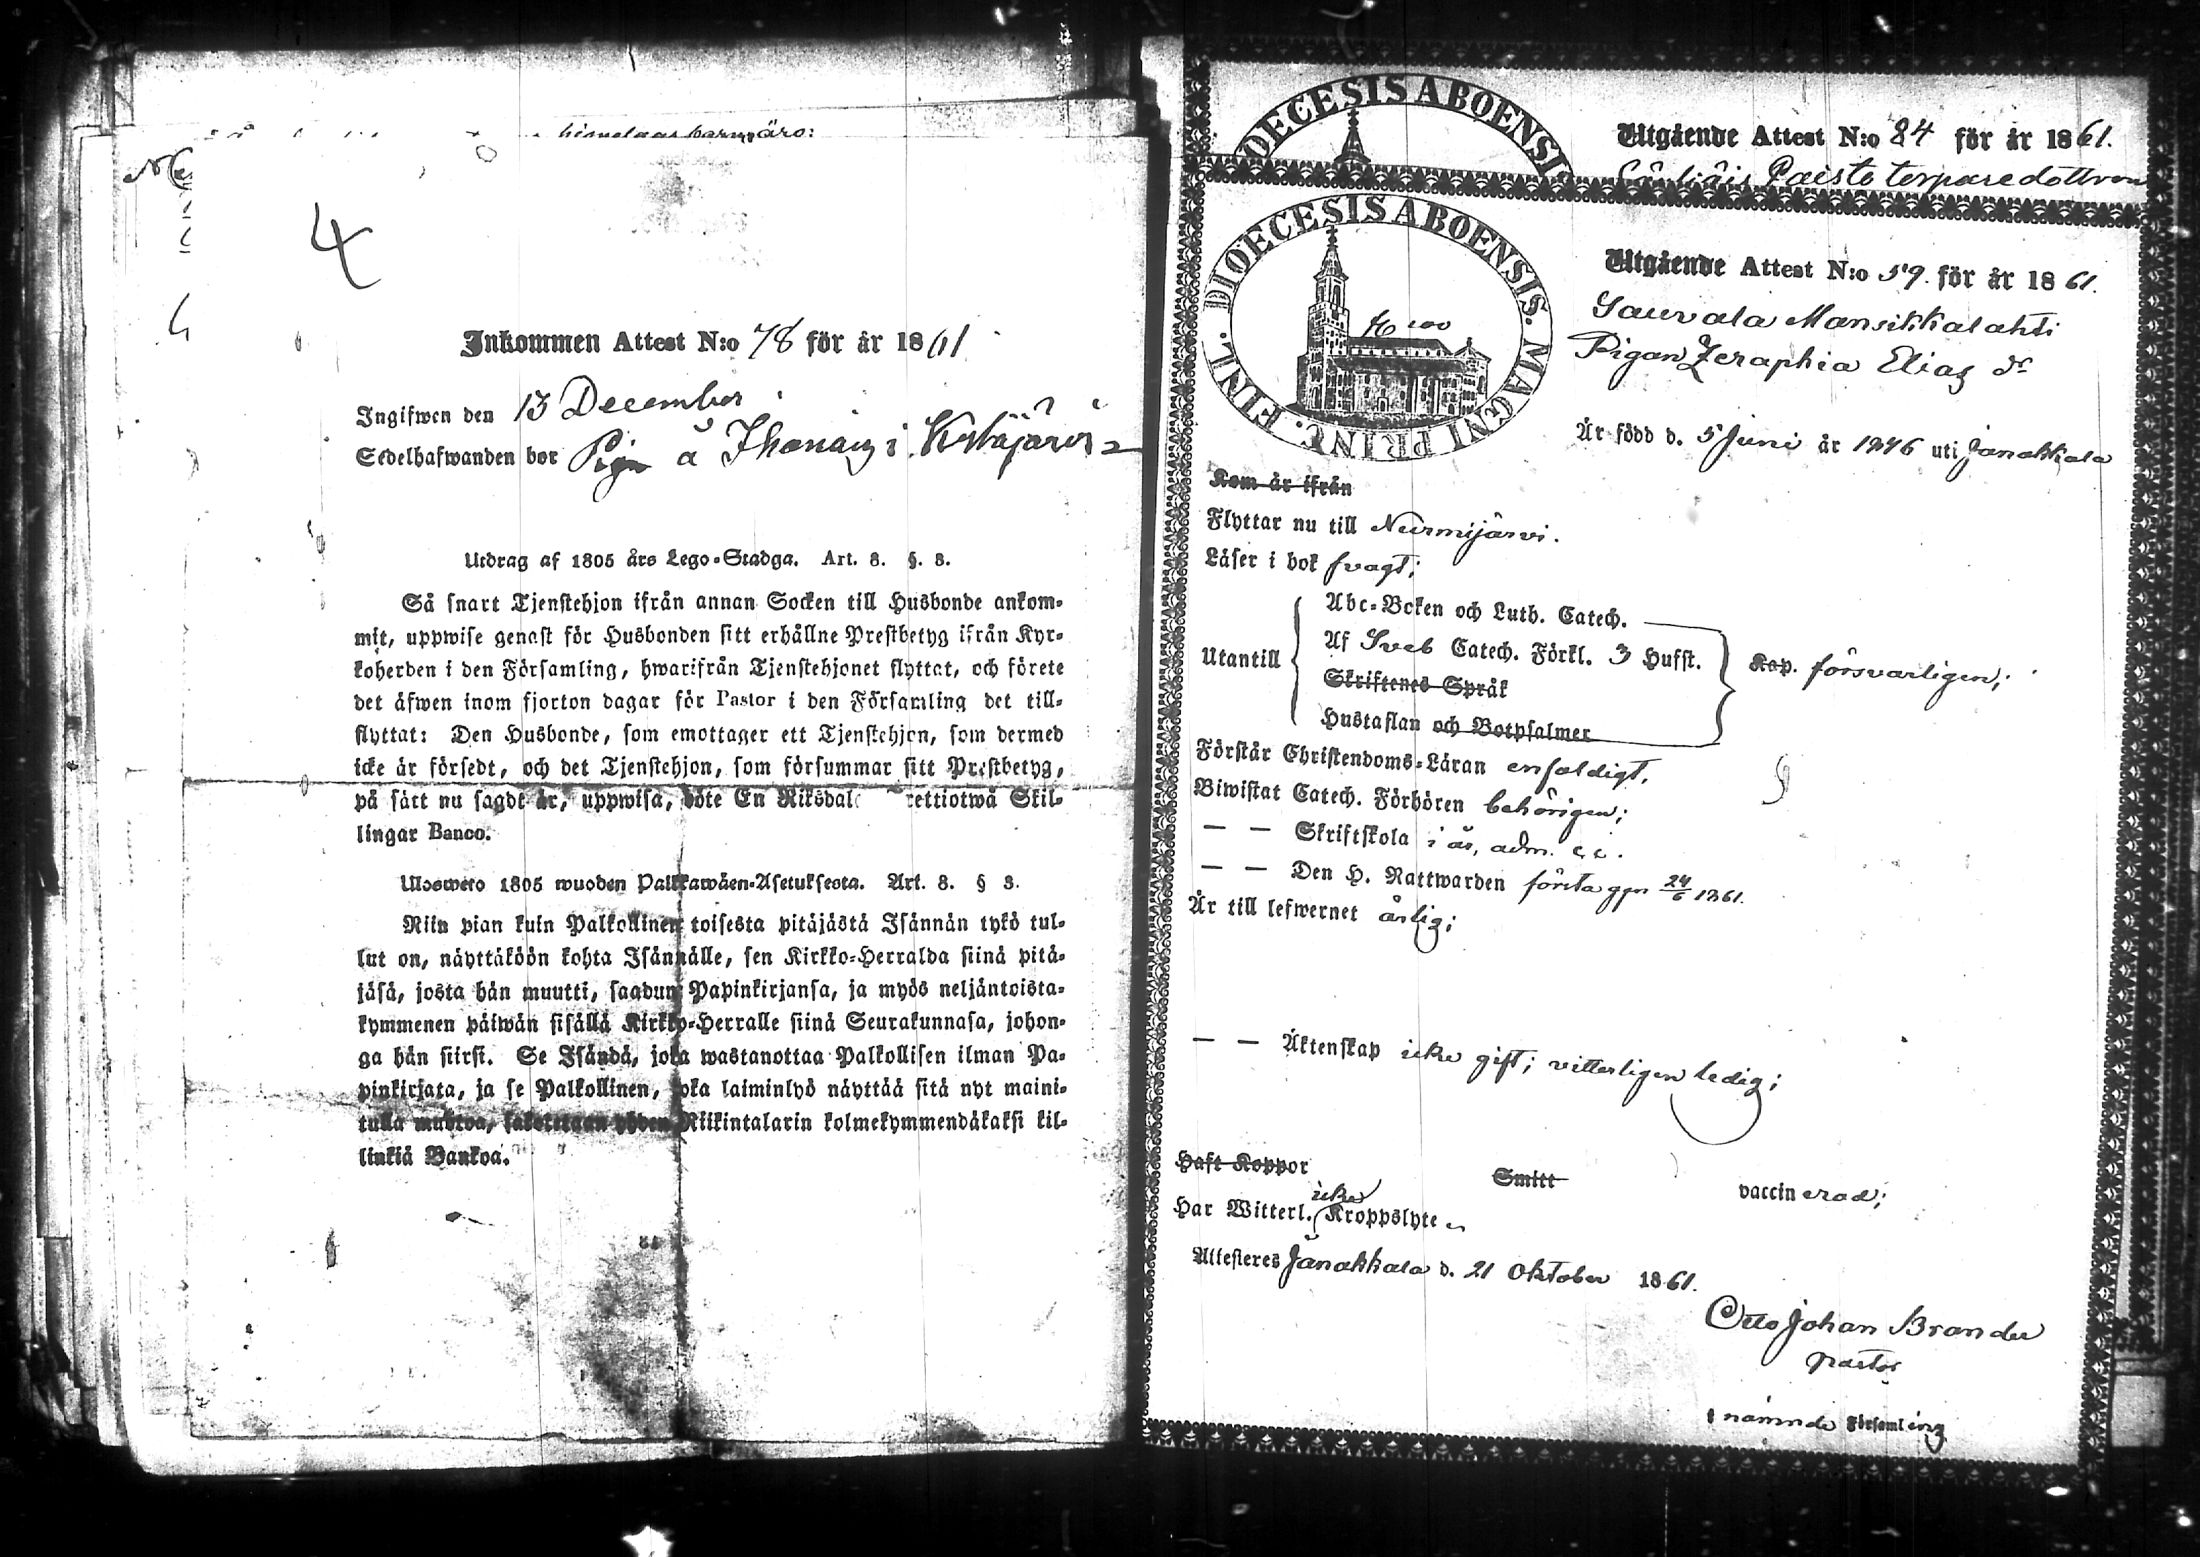 4
Inkommen Attest N:o 78 för år 1861
Ingifwen den 13 December
Sedelhafwanden bor Piga å i
Utdrag af 1805 års Lego-Stadga. Art. 8. §. 3.
Så snart Tjenstehjon ifrån annan Socken till Husbonde ankom-
mit, uppwise genast för Husbonden sitt erhållne Prestbetyg ifrån Kyr-
koherden i den Församling, hwarifrån Tjenstehjonet flyttat, och förete
det äfwen inom fjorton dagar för Pastor i den Församling det till-
flyttat: Den Husbonde, som emottager ett Tjenstehjon, som dermed
icke är försedt, och det Tjenstehjon, som försummar sitt Prestbetyg,
på sätt nu sagdt är, uppwisa, böte En Riksdal rettiotwå Skil-
lingar Banco.
Ulosweto 1805 wuoden Palkkawäen-Asetuksesta. Art. 8. § 3.
Niin pian kuin Palkollinen toisesta pitäjästä Isännän tykö tul-
lut on, näyttäköön kohta Isännälle, sen Kirkko-Herralda siinä pitä-
jäsä, josta hän muutti, saadun Papinkirjansa, ja myös neljäntoista-
kymmenen päiwän sisällä Kirkko-Herralle siinä Seurakunnasa, johon-
ga hän siirsi. Se Isändä, joka wastanottaa Palkollisen ilman Pa-
pinkirjata, ja se Palkollinen, joka laiminlyö näyttää sitä nyt maini-
tulla muotoa, sakotetaan yhden Riikintalarin kolmekymmendäkaksi kil-
linkiä Bankoa.
DIOECESIS ABOENSI
Utgående Attest N:o 84 för år 1861.
Paisto torparedottren
DIOECESIS ABOENSIS. MAGNI PRINC. FINL.
Utgående Attest N:o 59. för år 1861.
Saurvala Mansikkalahti
Pigan Zeraphia Elias dr
Är född d. 5 Juni år 1846 uti Janakkala
Kom år ifrån
Flyttar nu till Nurmijärvi.
Läser i bok svagt;
Utantill
Abc-Boken och Luth. Catech.
Af Sveb Catech. Förkl. 3 Hufst.
Skriftenes Språk
Hustaflan och Botpsalmer
Kap. försvarligen;
Förstår Christendoms-Läran enfaldigt,
Biwistat Catech. Förhören behörigen;
— — Skriftskola i år, adm.
— — Den H. Nattwarden första ggn 24/6 1861.
Är till lefwernet ärlig;
— — Äktenskap icke gift; vitterligen ledig;
Haft Koppor Smitt vaccinerad;
Har Witterl. icke Kroppslyte
Attesteres Janakkala d. 21 Oktober 1861.
Otto Johan Brander
pastor
i nämnde Församling